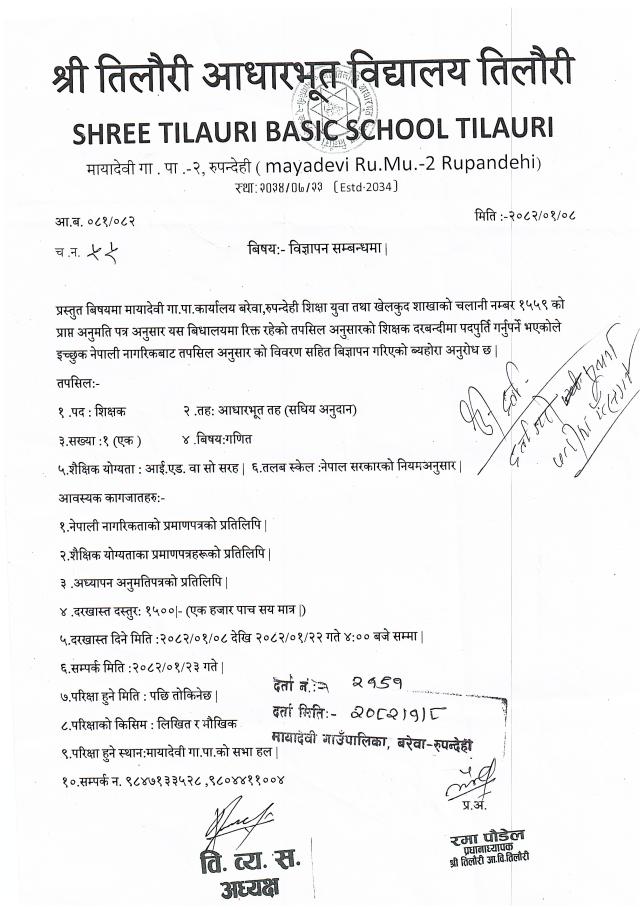 श्री तिलौरी आधारभूत विद्यालय तिलौरी
SHREE TILAURI BASIC SCHOOL TILAURI
मायादेवी गा . पा .-२, रुपन्देही ( mayadevi Ru.Mu.-2 Rupandehi)
स्था: २०३४/०६/२३ (Estd-2034)
आ.ब. ०८१/०८२ मिति :-२०८२/०१/०८
च .न.
बिषय:- विज्ञापन सम्बन्धमा |
प्रस्तुत बिषयमा मायादेवी गा.पा.कार्यालय बरेवा,रुपन्देही शिक्षा युवा तथा खेलकुद शाखाको चलानी नम्बर १५५९ को
प्राप्त अनुमति पत्र अनुसार यस बिधालयमा रिक्त रहेको तपसिल अनुसारको शिक्षक दरबन्दीमा पदपुर्ति गर्नुपर्ने भएकोले
इच्छुक नेपाली नागरिकबाट तपसिल अनुसार को विवरण सहित बिज्ञापन गरिएको ब्यहोरा अनुरोध छ |
तपसिल:-
१ .पद : शिक्षक २ .तह: आधारभूत तह (सधिय अनुदान)
३.सख्या :१ (एक ) ४ .बिषय:गणित
५.शैक्षिक योग्यता : आई.एड. वा सो सरह | ६.तलब स्केल :नेपाल सरकारको नियमअनुसार |
आवस्यक कागजातहरु:-
१.नेपाली नागरिकताको प्रमाणपत्रको प्रतिलिपि |
२.शैक्षिक योग्यताका प्रमाणपत्रहरूको प्रतिलिपि |
३ .अध्यापन अनुमतिपत्रको प्रतिलिपि |
४ .दरखास्त दस्तुर: १५००|- (एक हजार पाच सय मात्र |)
५.दरखास्त दिने मिति :२०८२/०१/०८ देखि २०८२/०१/२२ गते ४:०० बजे सम्मा |
६.सम्पर्क मिति :२०८२/०१/२३ गते |
७.परिक्षा हुने मिति : पछि तोकिनेछ |
८.परिक्षाको किसिम : लिखित र मौखिक
९.परिक्षा हुने स्थान:मायादेवी गा.पा.को सभा हल |
१०.सम्पर्क न. ९८४७१३३५२८ ,९८०४४११००४
दर्ता नं.:- २९५९
दर्ता मिति:- २०८२।१।८
मायादेवी गाउँपालिका, बरेवा-रुपन्देही
प्र.अ.
वि. व्य. स.
अध्यक्ष
रमा पौडेल
प्रधानाध्यापक
श्री तिलौरी आ.वि.तिलौरी